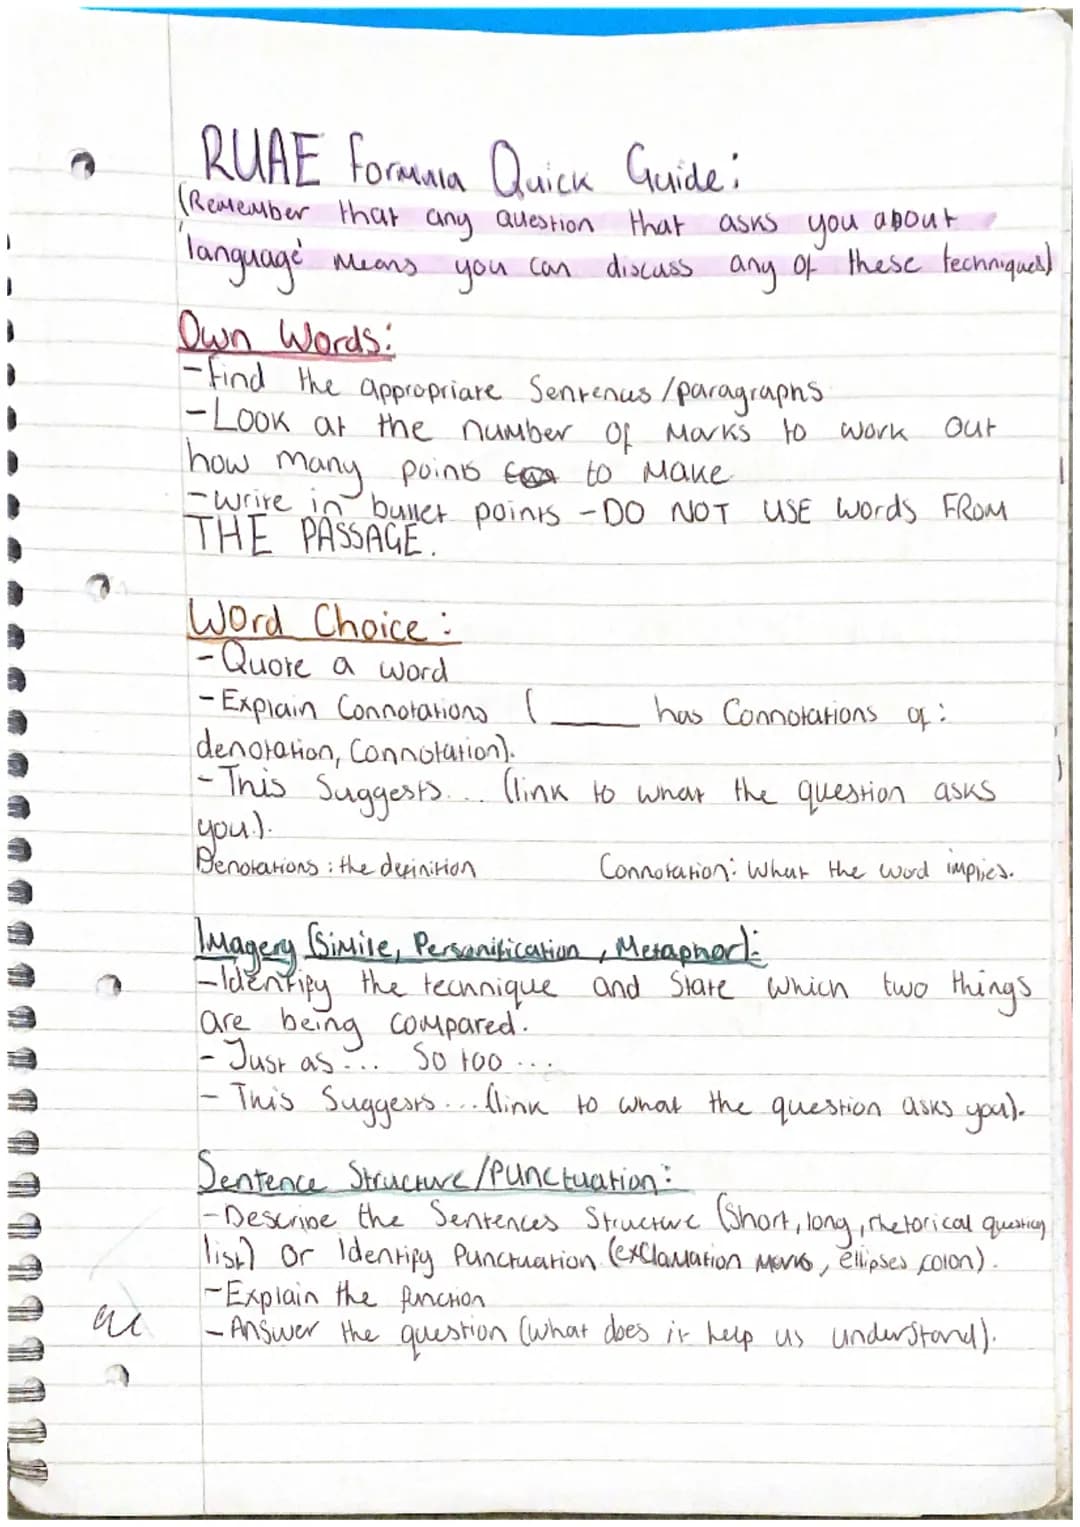 RUAE Formula Quick Guide:
(Remember that any question that asks you about
'language' means you can discuss any of these techniques)
Own Words:
-Find the appropriate Sentences/paragraphs
-Look at the number of Marks to work out
how many points to Make
-write in bullet points -DO NOT USE words FROM
THE PASSAGE.
Word Choice:
-Quote a word
-Explain Connotations (____ has Connotations of:
denotation, Connotation).
-This Suggests... (link to what the question asks
you).
Denotations: the definition Connotation: What the word implies.
Imagery (Simile, Personification, Metaphor):
-Identify the technique and State which two things
are being compared.
- Just as... So too...
- This Suggests... (link to what the question asks you).
Sentence Structure/Punctuation:
-Describe the Sentences Structure (Short, long, rhetorical question,
list) or identify Punctuation (exclamation marks, ellipses, colon).
-Explain the function
-Answer the question (what does it help us understand).